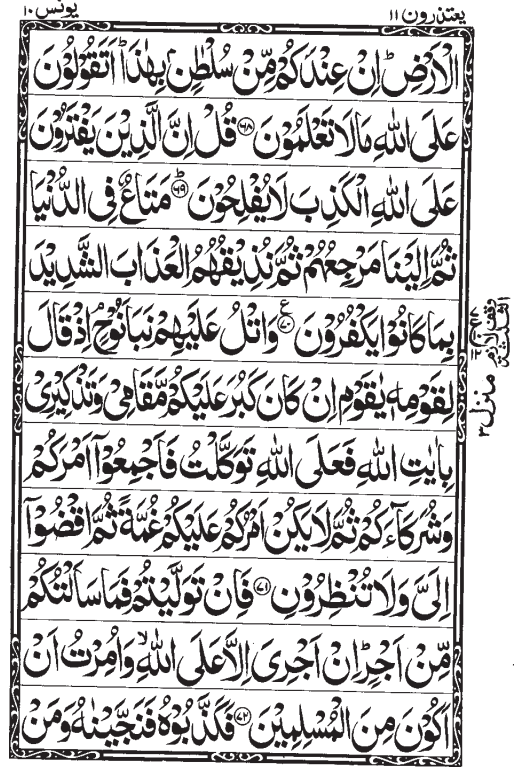 یعتذرون ۱۱
یونس ۱۰
الْاَرْضِ ؕ اِنْ عِنْدَكُمْ مِّنْ سُلْطٰنٍۭ بِهٰذَا ؕ اَتَقُوْلُوْنَ
عَلَى اللّٰهِ مَا لَا تَعْلَمُوْنَ ﴿۶۸﴾ قُلْ اِنَّ الَّذِیْنَ یَفْتَرُوْنَ
عَلَى اللّٰهِ الْكَذِبَ لَا یُفْلِحُوْنَ ؕ﴿۶۹﴾ مَتَاعٌ فِی الدُّنْیَا
ثُمَّ اِلَیْنَا مَرْجِعُهُمْ ثُمَّ نُذِیْقُهُمُ الْعَذَابَ الشَّدِیْدَ
بِمَا كَانُوْا یَكْفُرُوْنَ ﴿۷۰﴾ ع وَاتْلُ عَلَیْهِمْ نَبَاَ نُوْحٍ ۘ اِذْ قَالَ
لِقَوْمِهٖ یٰقَوْمِ اِنْ كَانَ كَبُرَ عَلَیْكُمْ مَّقَامِیْ وَتَذْكِیْرِیْ
بِاٰیٰتِ اللّٰهِ فَعَلَى اللّٰهِ تَوَكَّلْتُ فَاَجْمِعُوْۤا اَمْرَكُمْ
وَشُرَكَآءَكُمْ ثُمَّ لَا یَكُنْ اَمْرُكُمْ عَلَیْكُمْ غُمَّةً ثُمَّ اقْضُوْۤا
اِلَیَّ وَلَا تُنْظِرُوْنِ ﴿۷۱﴾ فَاِنْ تَوَلَّیْتُمْ فَمَا سَاَلْتُكُمْ
مِّنْ اَجْرٍ ؕ اِنْ اَجْرِیَ اِلَّا عَلَى اللّٰهِ ۙ وَاُمِرْتُ اَنْ
اَكُوْنَ مِنَ الْمُسْلِمِیْنَ ﴿۷۲﴾ فَكَذَّبُوْهُ فَنَجَّیْنٰهُ وَمَنْ
وقف لازم
منزل ۳